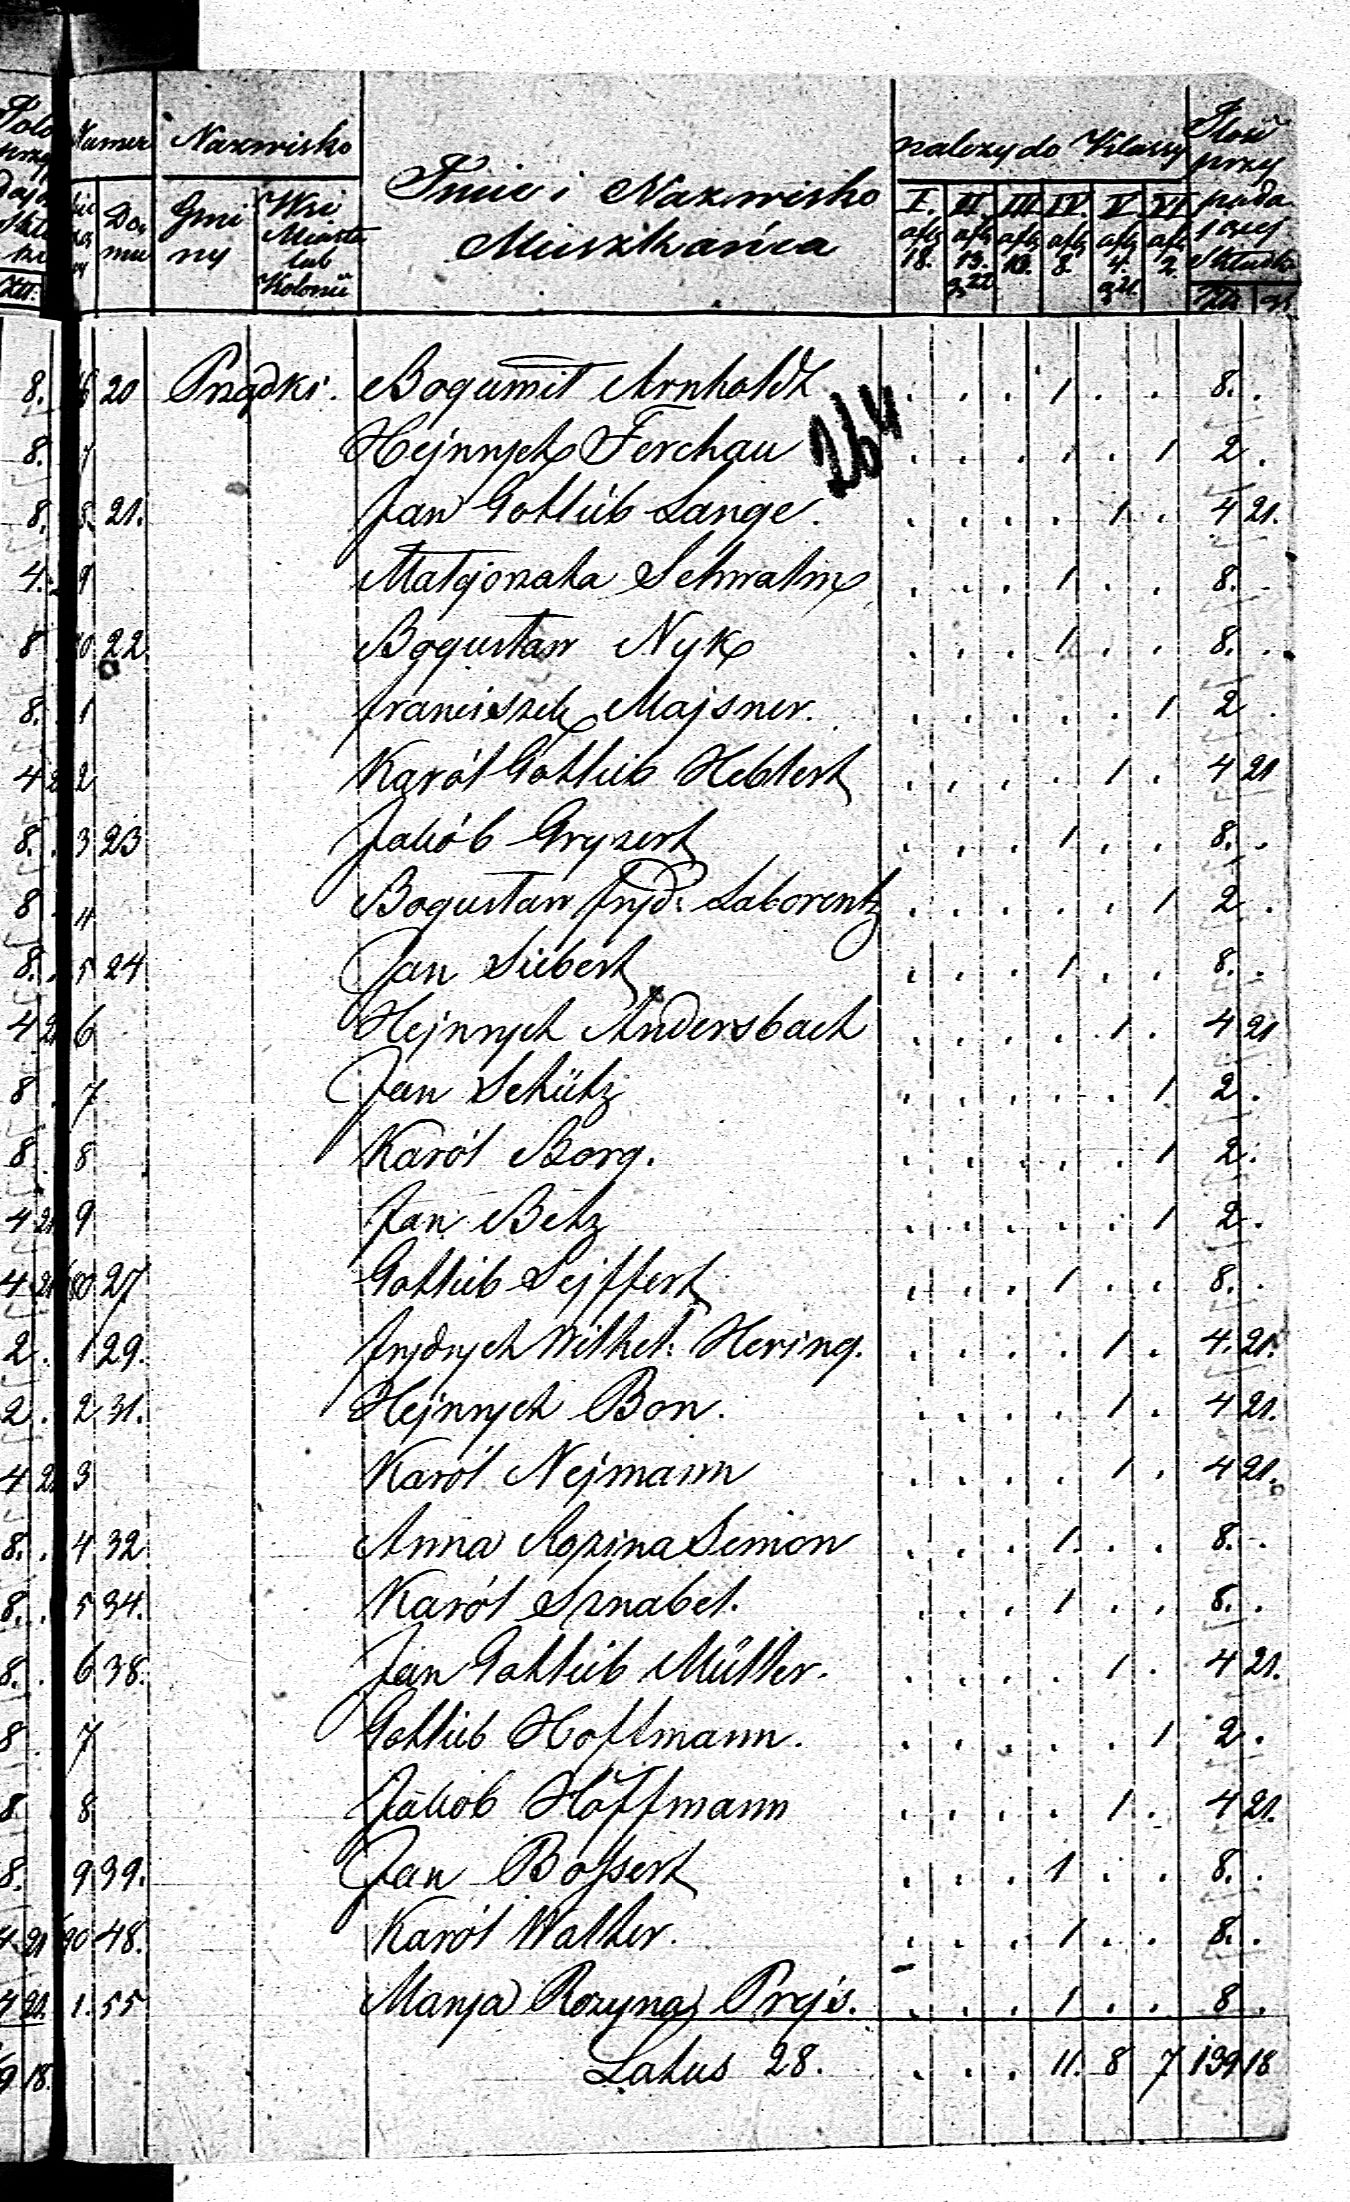 Numer Nazwisko Imie i Nazwisko Mieszkańca należy do Klassy Ilość przy pada jącej składki
Do mu Gmi ny Wsi Miasta lub Kolonii I. II III IV. V VI
18. 13. 10. 8. 4. 2. Złt. gr.
20 Prządki. Bogumił Arnholdt . . . 1 . . 8. .
264
7 Hejnrych Ferchau . . . 1 . 1 2 .
8. 21. Jan Gottlieb Lange. . . . . 1 . 4 21.
9 Małgorzata Schwalm . . . 1 . . 8. .
22 Bogusław Nyk . . . 1 . . 8. .
1 Franciszek Majsner. . . . . . 1 2 .
2 Karól Gottlieb Heblert . . . . 1 . 4 21
3 23 Jakób Gryzert . . . 1 . . 8. .
4 Bogusław Fryd: Laborentz . . . . . 1 2 .
5 24 Jan Siebert . . . 1 . . 8. .
6 Hejnrych Andersbach . . . . 1 . 4 21
7 Jan Schütz . . . . . 1 2 .
8 Karól Borg. . . . . . 1 2 .
9 Jan Betz . . . . . 1 2 .
80 27 Gottlieb Sejffert . . . 1 . . 8. .
1 29. Frydrych Wilhel: Hering. . . . . 1 . 4. 21.
2 31. Hejnrych Bon. . . . . 1 . 4 21.
3 Karól Nejmann . . . . 1 . 4 21.
4 32 Anna Rozina Simon . . . 1. . . 8. .
5 34. Karól Sznabel. . . . 1 . . 8. .
6 38. Jan Gottlieb Müller. . . . . 1 . 4 21.
7 Gottlieb Hoffmann. . . . . . 1 2 .
8 Jakób Hoffmann . . . . 1 . 4 21.
9 39. Jan Bossert . . . 1 . . 8. .
90 48. Karól Walther. . . . 1 . . 8. .
1. 55 Marya Rozyna Prejs. . . . 1 . . 8 .
Latus 28. . . . 11. 8 7 139 18